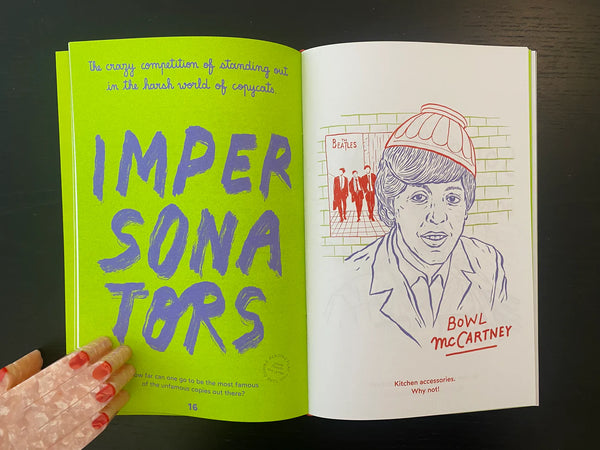 The crazy competition of standing out
in the harsh world of copycats.
IMPER
SONA
TORS
ow far can one go to be the most famous
of the unfamous copies out there?
16
THE
BEATLES
BOWL
McCARTNEY
Kitchen accessories.
Why not!